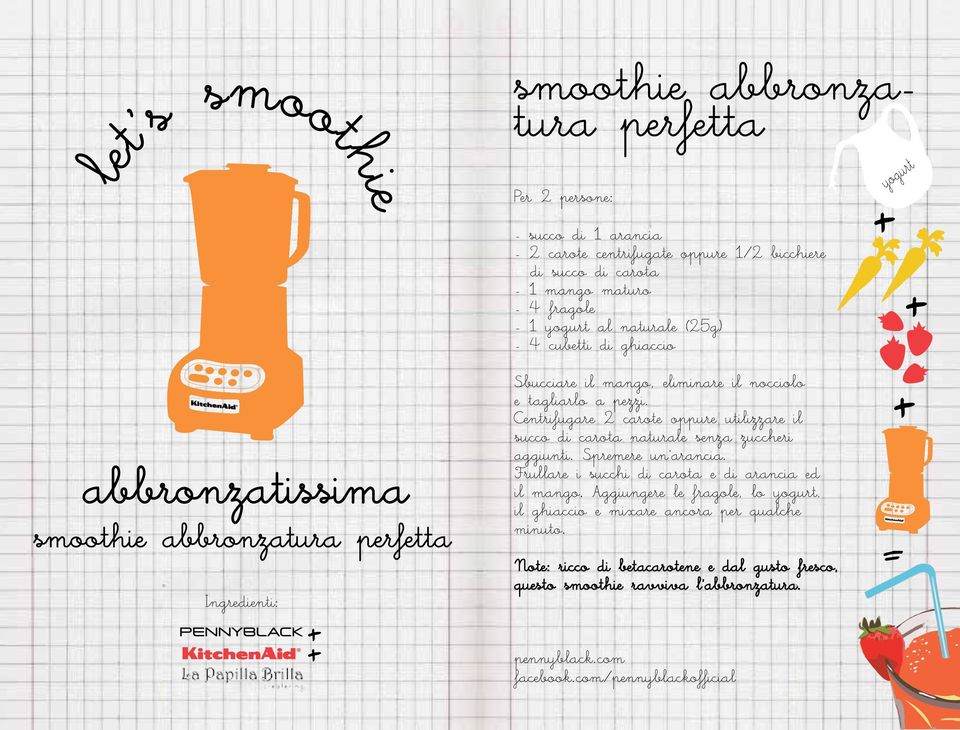 let's smoothie
KitchenAid
abbronzatissima
smoothie abbronzatura perfetta
Ingredienti:
PENNYBLACK +
KitchenAid +
La Papilla Brilla
catering
smoothie abbronza-
tura perfetta
Per 2 persone:
- succo di 1 arancia
- 2 carote centrifugate oppure 1/2 bicchiere
di succo di carota
- 1 mango maturo
- 4 fragole
- 1 yogurt al naturale (25g)
- 4 cubetti di ghiaccio
Sbucciare il mango, eliminare il nocciolo
e tagliarlo a pezzi.
Centrifugare 2 carote oppure utilizzare il
succo di carota naturale senza zuccheri
aggiunti. Spremere un'arancia.
Frullare i succhi di carota e di arancia ed
il mango. Aggiungere le fragole, lo yogurt,
il ghiaccio e mixare ancora per qualche
minuto.
Note: ricco di betacarotene e dal gusto fresco,
questo smoothie ravviva l'abbronzatura.
pennyblack.com
facebook.com/pennyblackofficial
yogurt
+
+
+
=